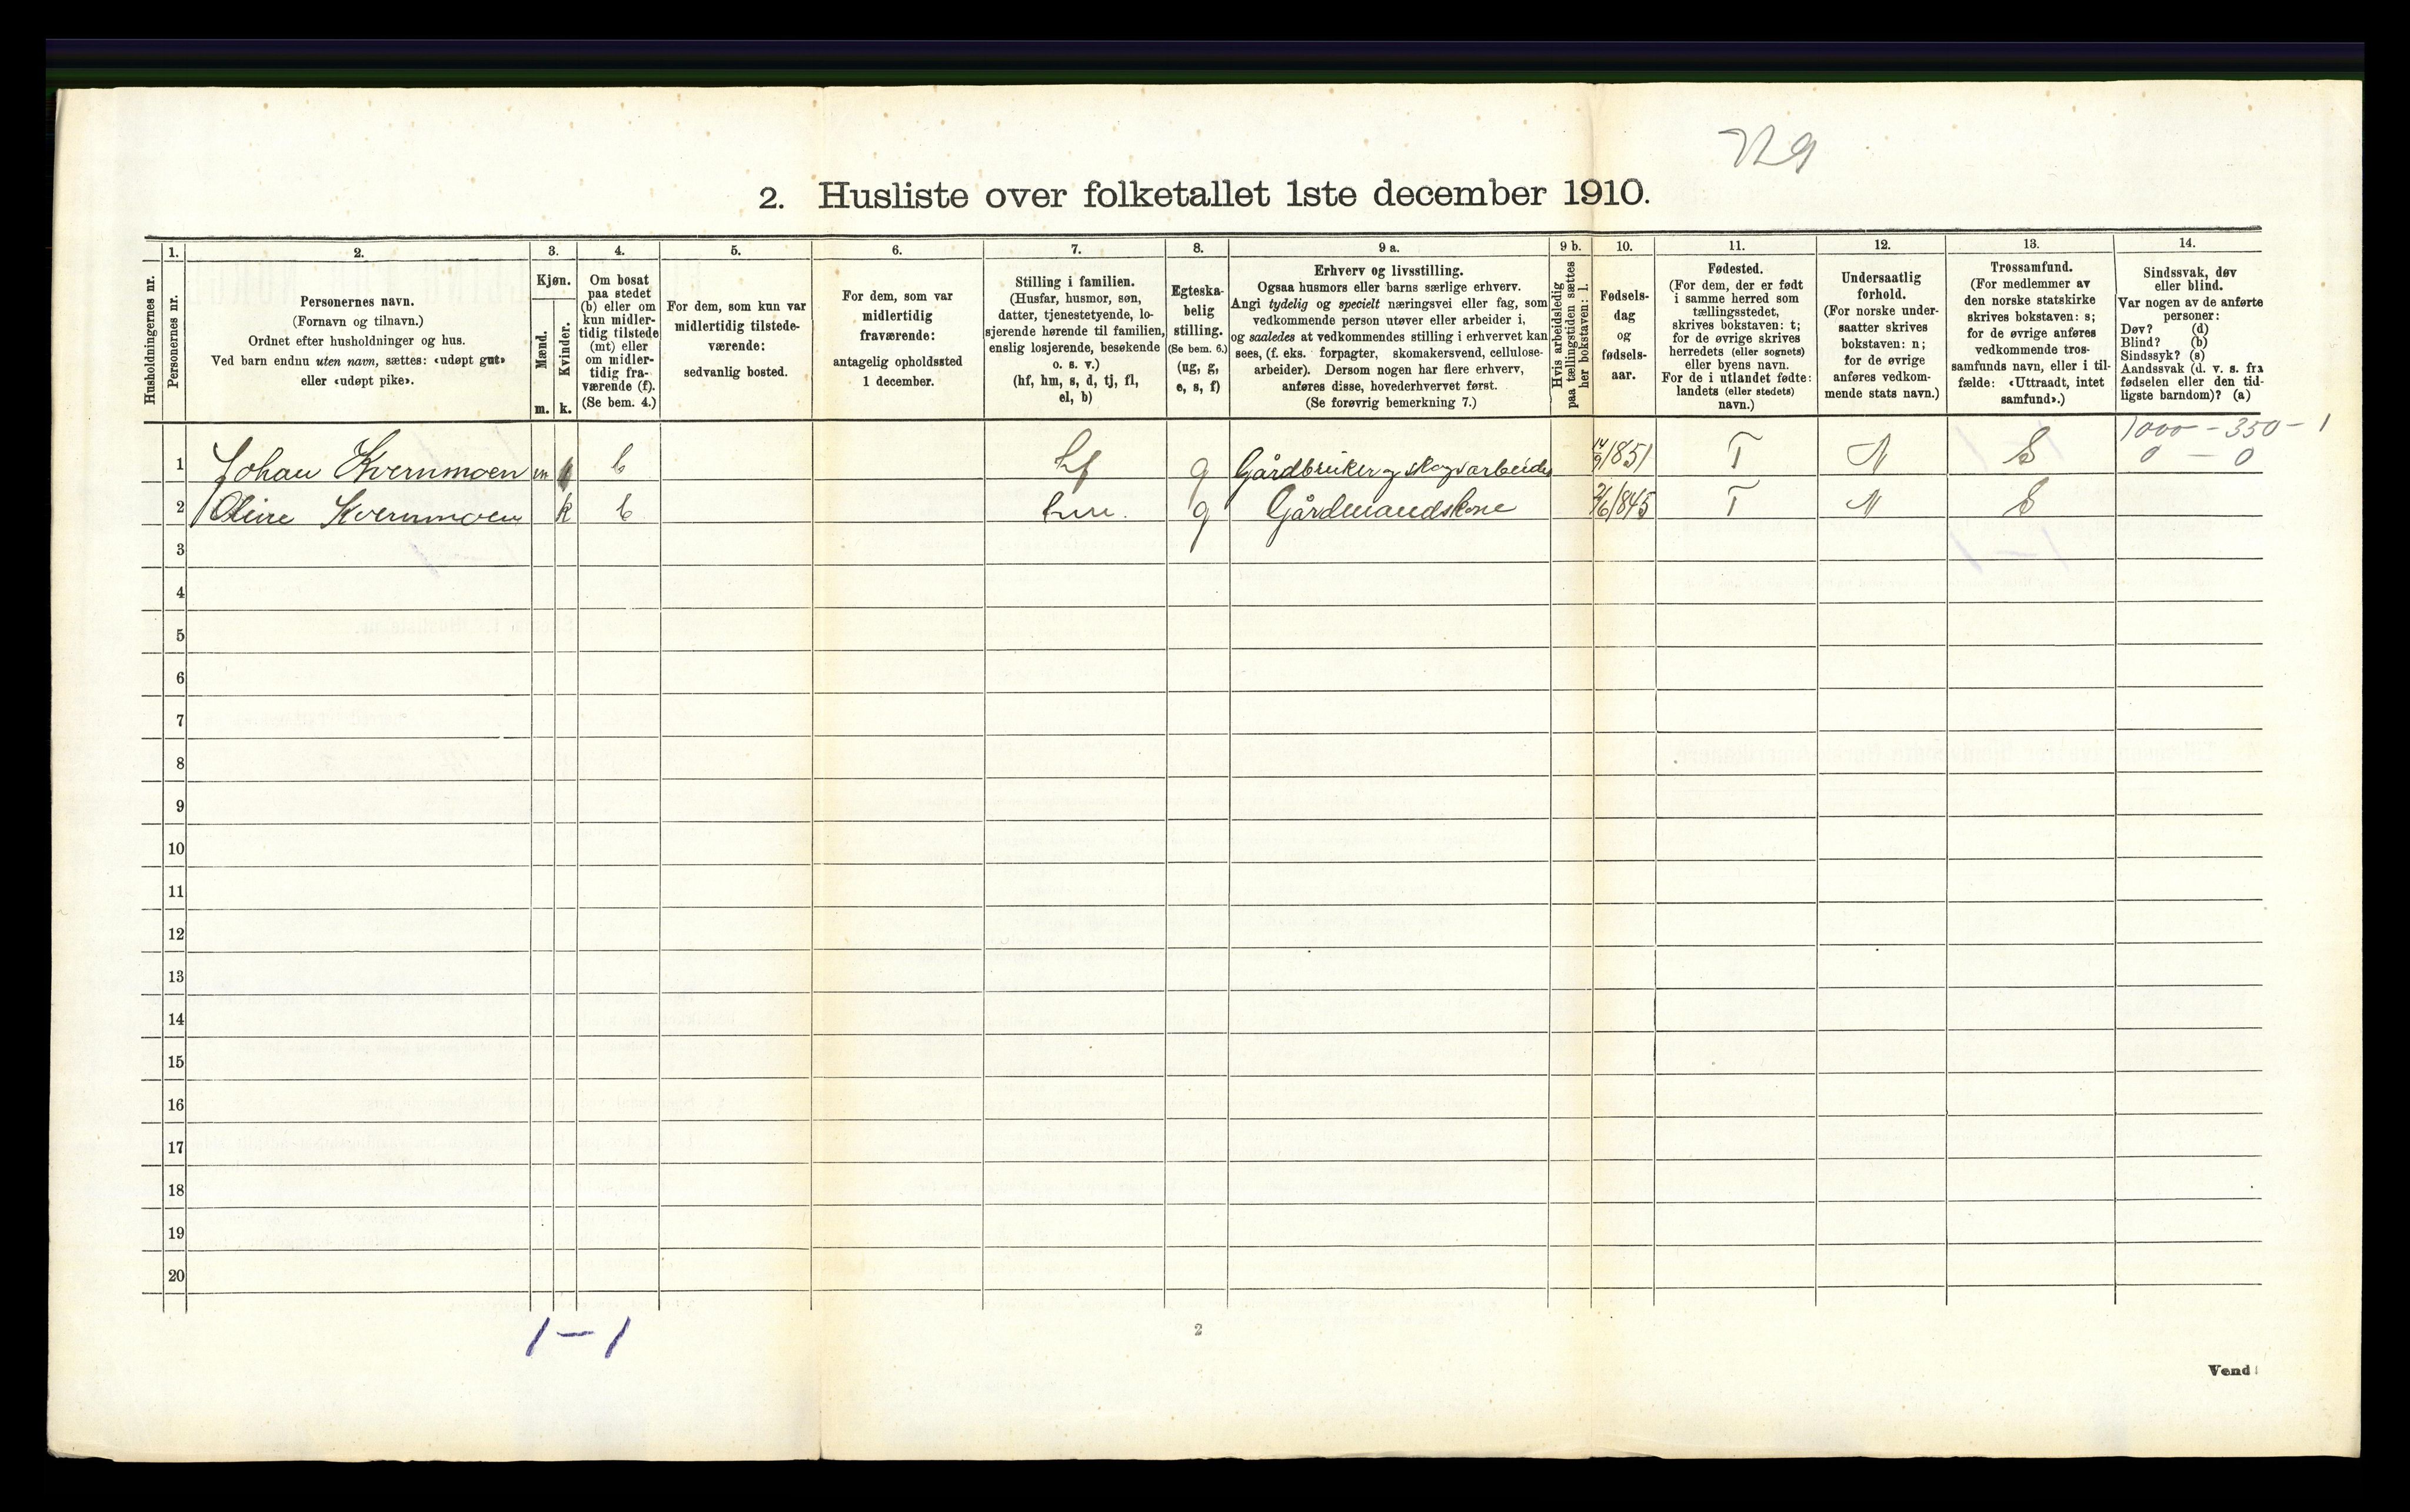 729
2. Husliste over folketallet 1ste december 1910.
Husholdningernes nr.
1.
Personernes nr.
2.
Personernes navn.
(Fornavn og tilnavn.)
Ordnet efter husholdninger og hus.
Ved barn endnu uten navn, sættes: «udøpt gut»
eller «udøpt pike».
3.
Kjøn.
Mænd.
Kvinder.
m. k.
4.
Om bosat
paa stedet
(b) eller om
kun midler-
tidig tilstede
(mt) eller
om midler-
tidig fra-
værende (f).
(Se bem. 4.)
5.
For dem, som kun var
midlertidig tilstede-
værende:
sedvanlig bosted.
6.
For dem, som var
midlertidig
fraværende:
antagelig opholdssted
1 december.
7.
Stilling i familien.
(Husfar, husmor, søn,
datter, tjenestetyende, lo-
sjerende hørende til familien,
enslig losjerende, besøkende
o. s. v.)
(hf, hm, s, d, tj, fl,
el, b)
8.
Egteska-
belig
stilling.
(Se bem. 6.)
(ug, g,
e, s, f)
9 a.
Erhverv og livsstilling.
Ogsaa husmors eller barns særlige erhverv.
Angi tydelig og specielt næringsvei eller fag, som
vedkommende person utøver eller arbeider i,
og saaledes at vedkommendes stilling i erhvervet kan
sees, (f. eks. forpagter, skomakersvend, cellulose-
arbeider). Dersom nogen har flere erhverv,
anføres disse, hovederhvervet først.
(Se forøvrig bemerkning 7.)
9 b.
Hvis arbeidsledig
paa tællingstiden sættes
her bokstaven: l.
10.
Fødsels-
dag
og
fødsels-
aar.
11.
Fødested.
(For dem, der er født
i samme herred som
tællingsstedet,
skrives bokstaven: t;
for de øvrige skrives
herredets (eller sognets)
eller byens navn.
For de i utlandet fødte:
landets (eller stedets)
navn.)
12.
Undersaatlig
forhold.
(For norske under-
saatter skrives
bokstaven: n;
for de øvrige
anføres vedkom-
mende stats navn.)
13.
Trossamfund.
(For medlemmer av
den norske statskirke
skrives bokstaven: s;
for de øvrige anføres
vedkommende tros-
samfunds navn, eller i til-
fælde: «Uttraadt, intet
samfund».)
14.
Sindssvak, døv
eller blind.
Var nogen av de anførte
personer:
Døv? (d)
Blind? (b)
Sindssyk? (s)
Aandssvak (d. v. s. fra
fødselen eller den tid-
ligste barndom)? (a)
1000 - 350 - 1
0 - 0
1 Johan Kvernmoen m b hf g Gårdbruker og skogsarbeider 14/9 1851 T N S
2 Oline Kvernmoen k b hm. g Gårdmandskone 1845 T N S
3
4
5
6
7
8
9
10
11
12
13
14
15
16
17
18
19
20
1 - 1
2
Vend!